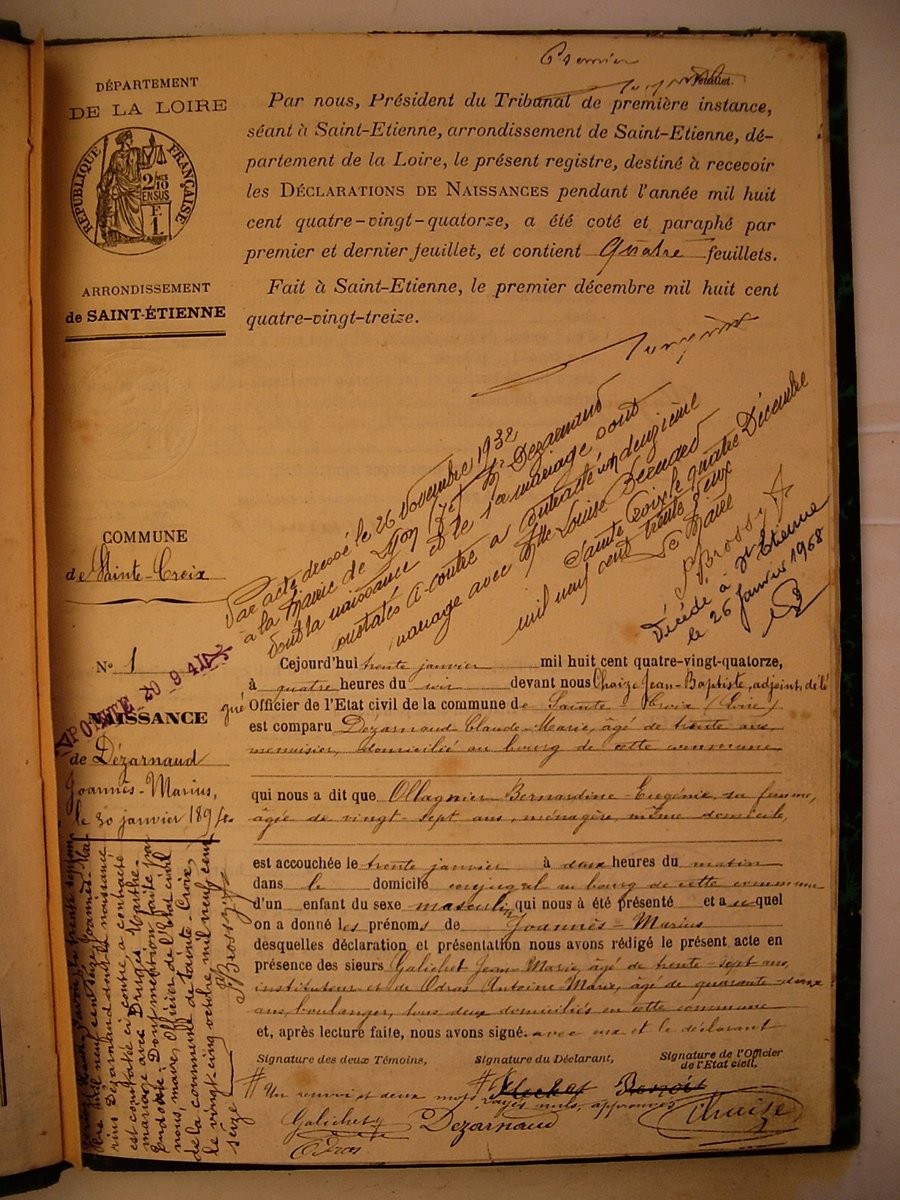 Premier
feuillet.
DÉPARTEMENT
DE LA LOIRE
RÉPUBLIQUE FRANÇAISE
2/10
EN SUS
F.
1.
ARRONDISSEMENT
de SAINT-ÉTIENNE
Par nous, Président du Tribunal de première instance,
séant à Saint-Etienne, arrondissement de Saint-Etienne, dé-
partement de la Loire, le présent registre, destiné à recevoir
les DÉCLARATIONS DE NAISSANCES pendant l'année mil huit
cent quatre-vingt-quatorze, a été coté et paraphé par
premier et dernier feuillet, et contient Quatre feuillets.
Fait à Saint-Etienne, le premier décembre mil huit cent
quatre-vingt-treize.
Par acte dressé le 26 Novembre 1932
à la Mairie de Lyon Mr Dezarnaud
dont la naissance et le 1er mariage sont
constatés ci-contre a contracté un deuxième
mariage avec Mlle Louise Besnard
Sainte Croix le quatre Décembre
mil neuf cent trente deux
Le Maire
Brossy
Décédé à St Etienne
le 26 Janvier 1968
COMMUNE
de Sainte-Croix
N° 1
NAISSANCE
de Dézarnaud
Joannès-Marius,
le 30 janvier 1894.
Cejourd'hui trente janvier mil huit cent quatre-vingt-quatorze,
à quatre heures du soir devant nous Chaize Jean-Baptiste, adjoint, délé
gué Officier de l'Etat civil de la commune de Sainte-Croix (Loire)
est comparu Dézarnaud Claude-Marie, âgé de trente ans
menuisier, domicilié au bourg de cette commune
qui nous a dit que Ollagnier Bernardine-Eugénie, sa femme,
âgée de vingt-sept ans, ménagère, même domicile,
est accouchée le trente janvier à deux heures du matin
dans le domicile conjugal au bourg de cette commune
d'un enfant du sexe masculin qui nous a été présenté et auquel
on a donné les prénoms de Joannès-Marius
desquelles déclaration et présentation nous avons rédigé le présent acte en
présence des sieurs Galichet Jean-Marie, âgé de trente-sept ans,
instituteur et de Odras Antoine Marie, âgé de quarante-deux
ans, boulanger, tous deux domiciliés en cette commune
et, après lecture faite, nous avons signé. avec eux et le déclarant
Signature des deux Témoins,
Signature du Déclarant,
Signature de l'Officier
de l'Etat civil,
Un renvoi et deux mots rayés nuls, approuvés
Galichet
Dezarnaud
Chaize
Odras
mil neuf cent seize Joannès-Ma
rius Dézarnaud dont la naissance
est constatée ci-contre a contracté
mariage avec Marthe
Dont mention faite par
nous, maire, Officier de l'Etat civil
de la commune de Sainte-Croix,
le vingt-cinq octobre mil neuf cent
seize
Brossy